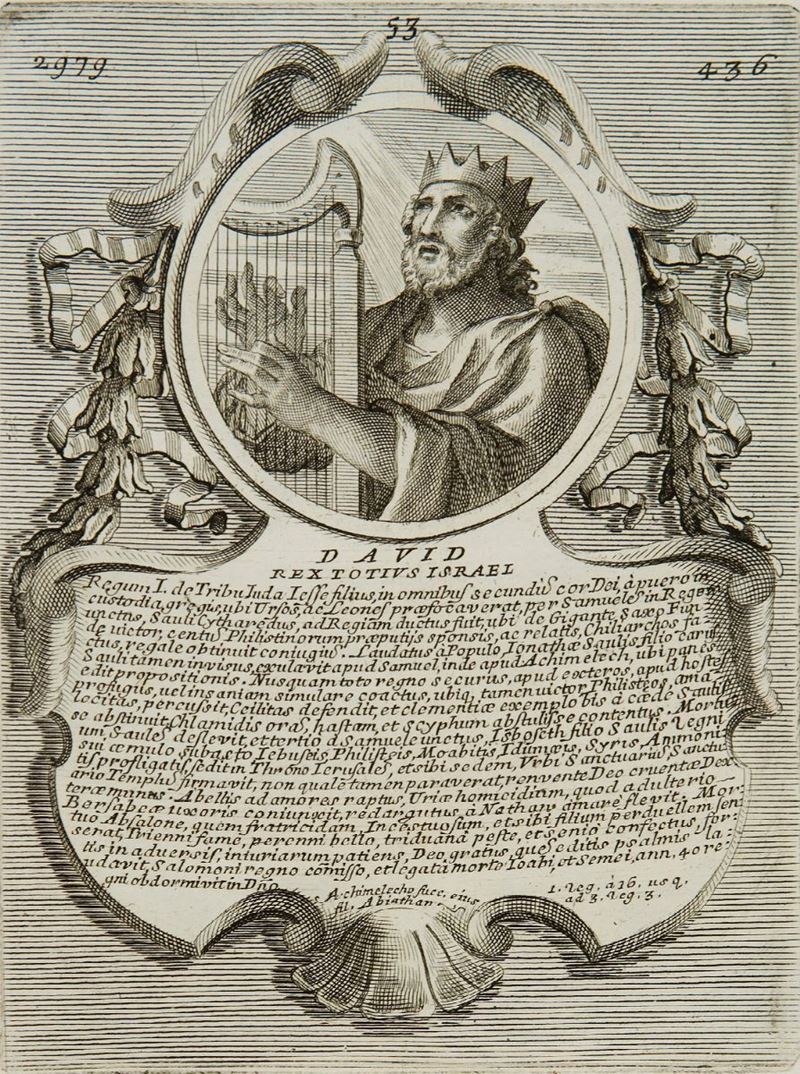 53
2979
436
DAVID
REX TOTIVS ISRAEL
Regum I. de Tribu Iuda Iesse filius, in omnibus secundũ cor Dei, à puero in
custodia gregis, ubi Ursos, ac Leones præfocaverat, per Samuelē in Regem
unctus, Sauli Cytharedus, ad Regiam ductus fuit, ubi de Gigante, saxo Fun
de victor, centũ Philistinorum præputijs sponsis, ac relatis, Chiliarchos fa
ctus, regale obtinuit coniugiũ. Laudatus à Populo Ionathæ Saulis filio carus
Sauli tamen invisus, exulavit apud Samuel, inde apud Achimelech, ubi panes
edit propositionis. Nusquam toto regno securus, apud exteros, apud hostes
profugus, vel insaniam simulare coactus, ubiq, tamen victor Philisteos, ama
locitas, percussit, Ceilitas defendit, et clementiæ exemplo bis à cæde Saulis
se abstinuit, Chlamidis orã, hastam, et scyphum abstulisse contentus. Mortu
um, Saulē deflevit, et tertio à Samuele unctus, Isboseth filio Saulis regni
sui æmulo subacto Iebuseis, Philisteis, Moabitis, Idumæis, Syris, Ammoni
tis profligatis, sedit in Throno Ierusalē, et sibi sedem, Urbi Sanctuariũ, Sanctu
ario Templũ firmavit, non qualē tamen paraverat, renvente Deo cruentæ Dex
teræ munus. Abellis ad amores raptus, Uriæ homicidium, quod adulterio
Bersabeæ uxoris coniunxit, redargutus à Nathan amare flevit. Mor
tuo Absalone, quem fratricidam, Incestuosum, et sibi filium perduellem sen
serat, Trienni fame, perenni bello, triduana peste, et senio confectus, for
tis in adversis, iniuriarum patiens, Deo gratus, quē editis psalmis la
udavit, Salomoni regno comisso, et legata morte Ioabi, et Semei, ann, 40 re
gni obdormivit in Dño
Achimelecho succ. eius
fil. Abiathar
1. Reg. à 16. usq.
ad 3. Reg. 3.